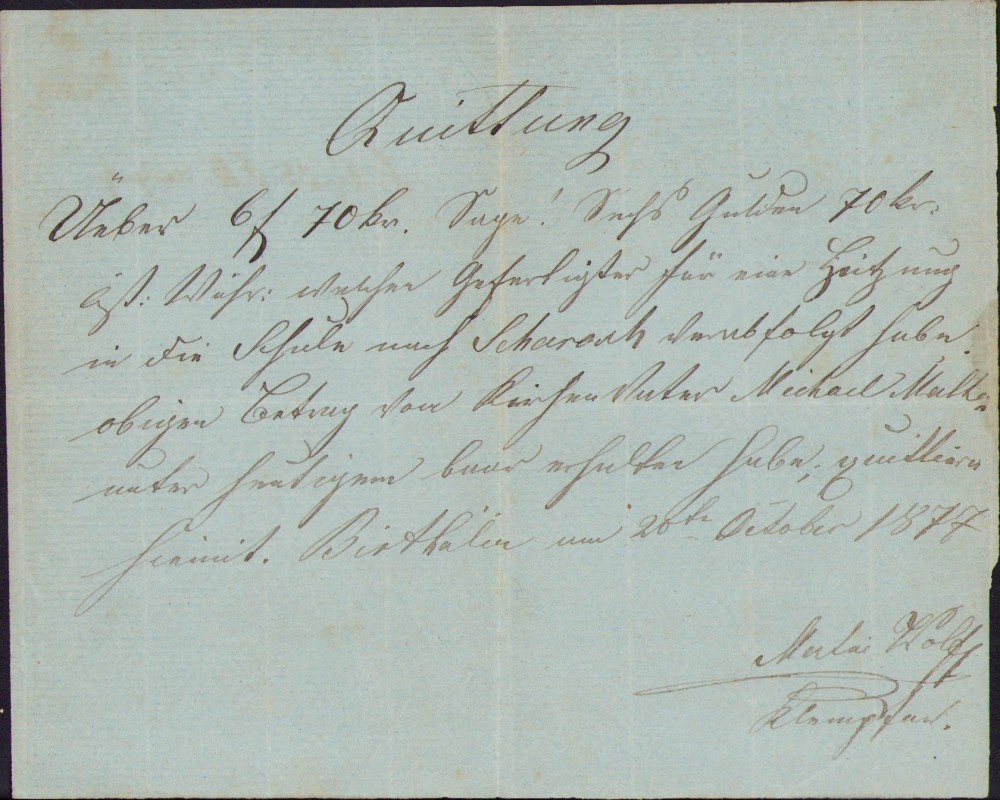 Quittung
Üeber 6f 70kr. Sage! Sechs Gulden 70kr:
öst: Währ: welchen Gefertigter für eine Heitzung
in die Schule nach Scharosch verabfolgt habe.
obigen Betrag von Kirchen Vater Michael
unter heutigem baar erhalten habe, quittiere
hiemit. Birthälm am 20te October 1877
Wolff